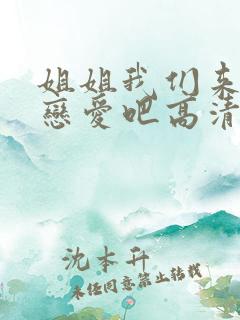 姐姐我们来
戀愛吧高清
沈本升
未经同意禁止转载